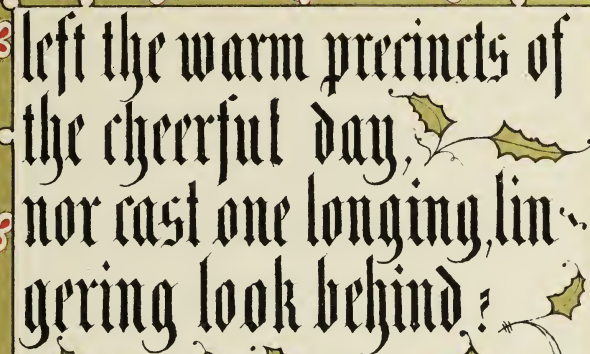 left the warm precincts of
the cheerful day,
nor cast one longing, lin-
gering look behind?